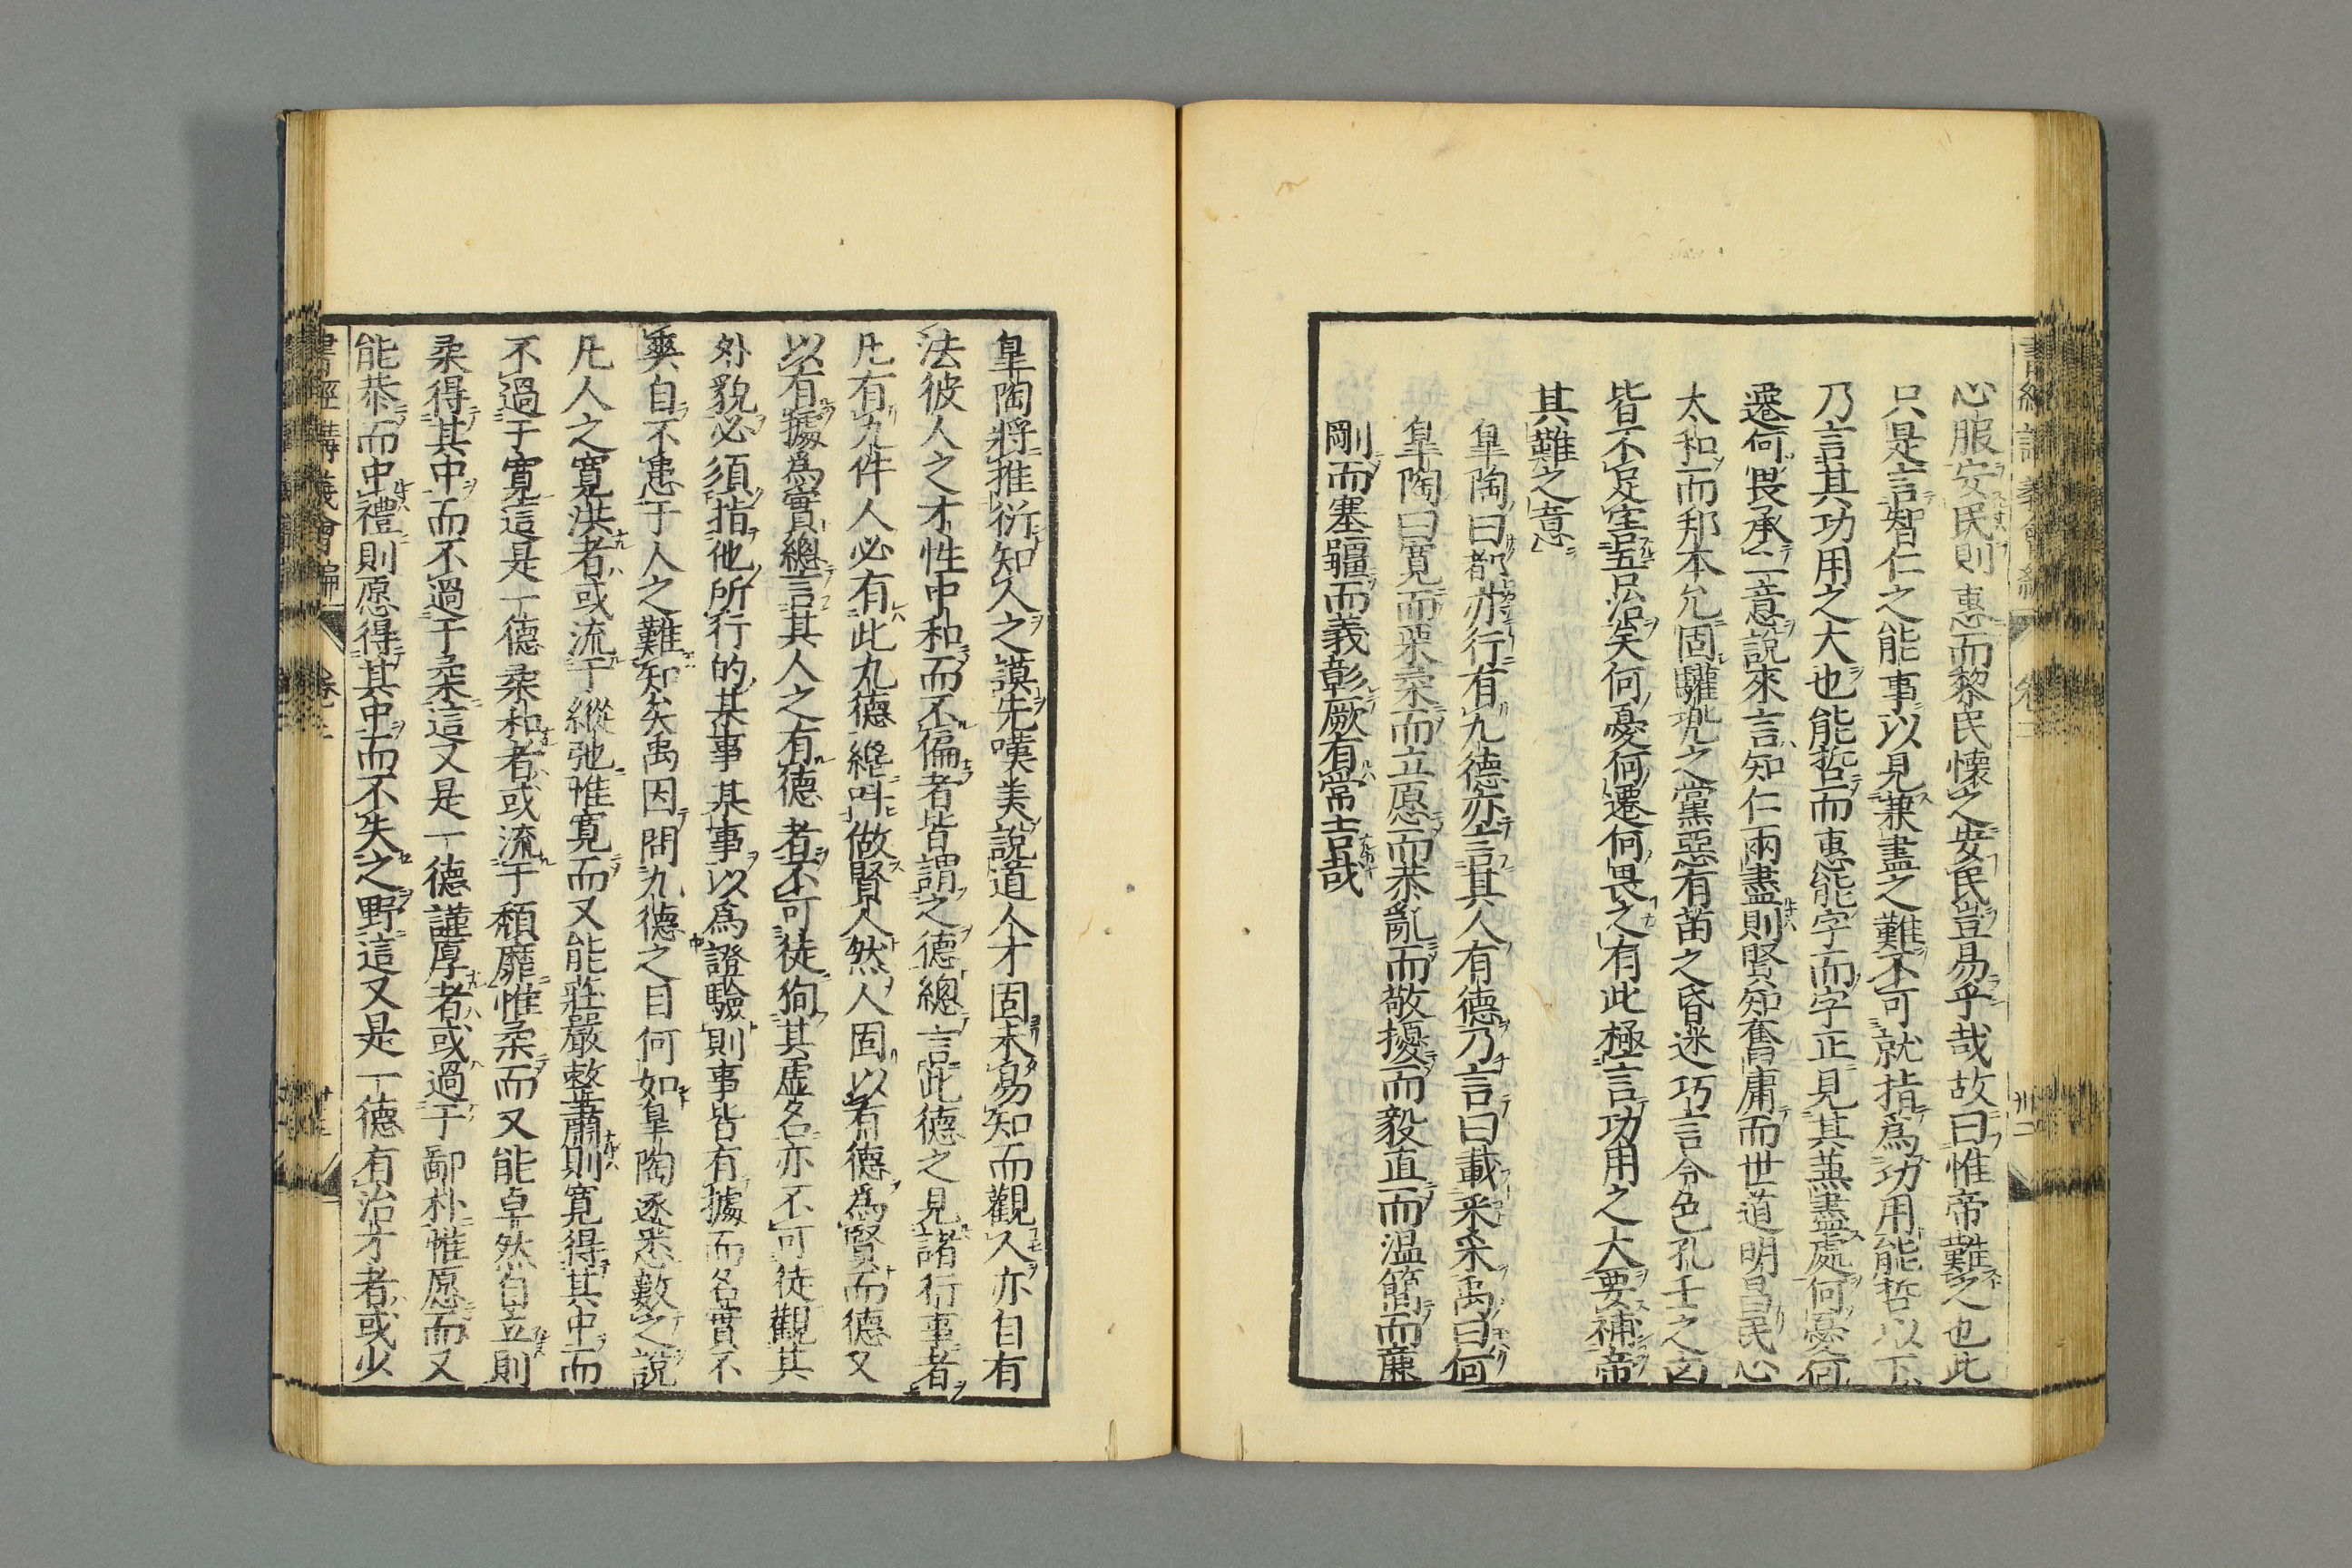 心服安民則惠而黎民懷之安民豈易乎哉故曰惟帝難之也此
只是言智仁之能事以見兼盡之難不可就指爲功用能哲以下
乃言其功用之大也能哲而惠能字而字正見其兼盡處何憂何
遷何畏承一意說來言知仁兩盡則賢知奮庸而世道明昌民心
太和而邦本允固驩兠之黨惡有苗之昏迷巧言令色孔壬之凶
皆不足害吾治矣何憂何遷何畏之有此極言功用之大要補帝
其難之意
皐陶曰都亦行有九德亦言其人有德乃言曰載采采禹曰何
皐陶曰寛而栗柔而立愿而恭亂而敬擾而毅直而温簡而廉
剛而塞疆而義彰厥有常吉哉
皐陶將推衍知人之謨先嘆美說道人才固未易知而觀人亦自有
法彼人之才性中和而不偏者皆謂之德總言此德之見諸行事者
凡有九件人必有此九德纔叫做賢人然人固以有德爲賢而德又
以有據爲實總言其人之有德者不可徒狥其虛名亦不可徒觀其
外貌必須指他所行的某事某事以爲證驗則事皆有據而名實不
爽自不患于人之難知矣禹因問九德之目何如皐陶遂悉數之說
凡人之寛洪者或流于縱弛惟寛而又能莊嚴整肅則寛得其中而
不過于寛這是一德柔和者或流于頽靡惟柔而又能卓然自立則
柔得其中而不過于柔這又是一德謹厚者或過于鄙朴惟愿而又
能恭而中禮則愿得其中而不失之野這又是一德有治才者或少
書經講義會編 卷二